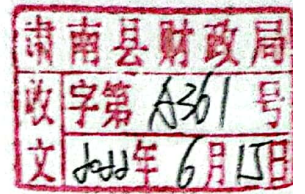 肃南县财政局
收文
字第 A361 号
2022年6月15日